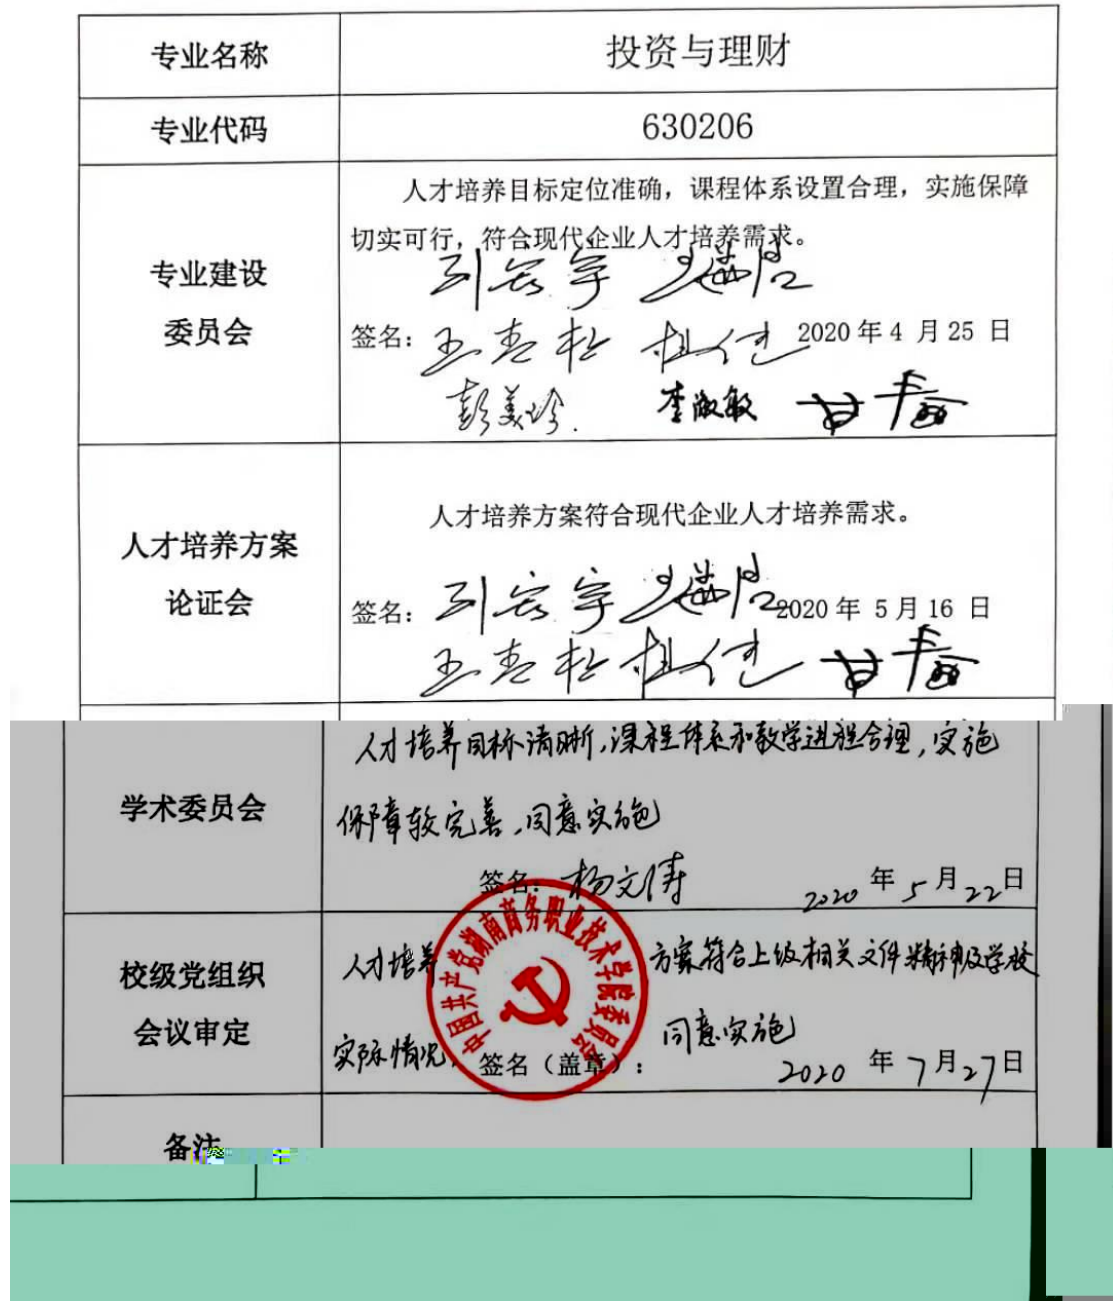 专业名称
投资与理财
专业代码
630206
专业建设
委员会
人才培养目标定位准确，课程体系设置合理，实施保障
切实可行，符合现代企业人才培养需求。
签名：
2020 年 4 月 25 日
彭美玲
李淑敏
人才培养方案
论证会
人才培养方案符合现代企业人才培养需求。
签名：
2020 年 5 月 16 日
学术委员会
人才培养目标清晰，课程体系和教学进程合理，实施
保障较完善，同意实施
签名：杨文涛
2020 年 5 月 22 日
校级党组织
会议审定
人才培养方案符合上级相关文件精神及学校
实际情况，同意实施
签名（盖章）：
2020 年 7 月 27 日
中国共产党湖南商务职业技术学院委员会
备注